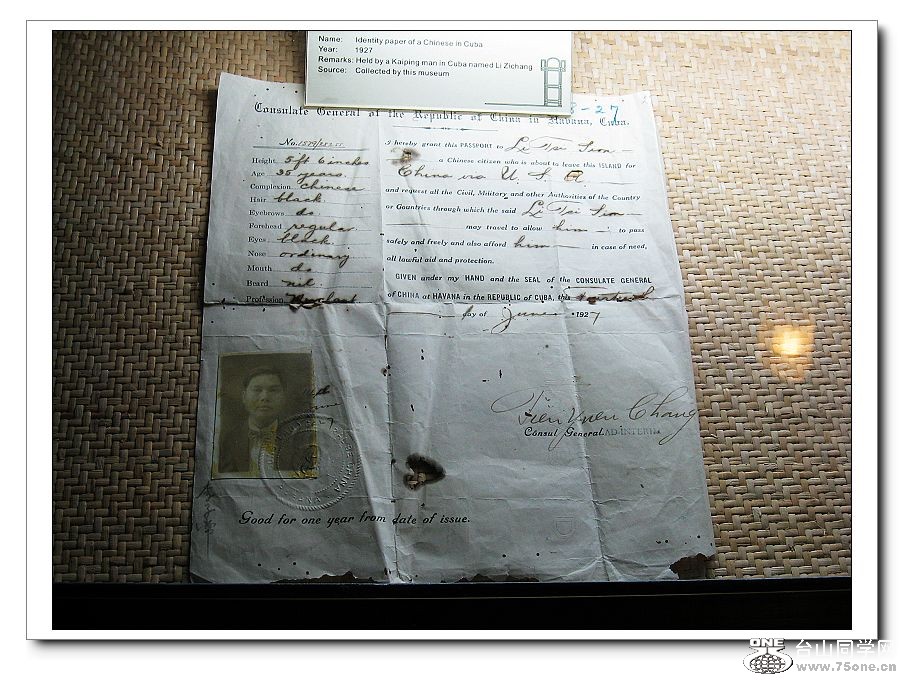 Name: Identity paper of a Chinese in Cuba
Year: 1927
Remarks: Held by a Kaiping man in Cuba named Li Zichang
Source: Collected by this museum
-27
Consulate General of the Republic of China in Habana, Cuba.
No.
Height 5 ft 6 inches
Age 35 years.
Complexion Chinese
Hair black
Eyebrows do
Forehead regular
Eyes black
Nose ordinary
Mouth do
Beard nil
Profession Merchant
I hereby grant this PASSPORT to Li Tsi Seon
a Chinese citizen who is about to leave this ISLAND for
China via U. S. A.
and request all the Civil, Military and other Authorities of the Country
or Countries through which the said Li Tsi Seon
may travel to allow him to pass
safely and freely and also afford him in case of need,
all lawful aid and protection.
GIVEN under my HAND and the SEAL of the CONSULATE GENERAL
of CHINA at HAVANA in the REPUBLIC of CUBA, this
day of June 1927
Tien Yuen Chang
Consul General AD-INTERIM
Good for one year from date of issue.
ONE 台山同学网
www.75one.cn